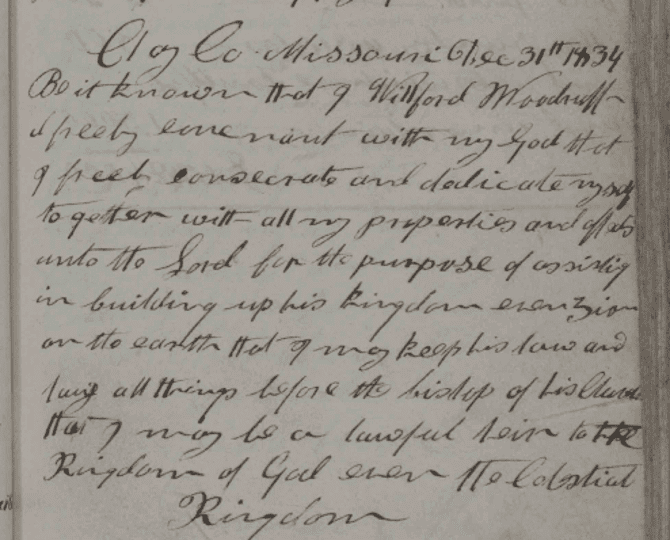 Clay Co Missouri Dec 31st 1834
Be it known that I Willford Woodruff
freely covenant with my God that
I freely consecrate and dedicate myself
together with all my properties and affects
unto the Lord for the purpose of assisting
in building up his kingdom even Zion
on the earth that I may keep his law and
lay all things before the bishop of his Church
that I may be a lawful heir to the
Kingdom of God even the Celestial
Kingdom